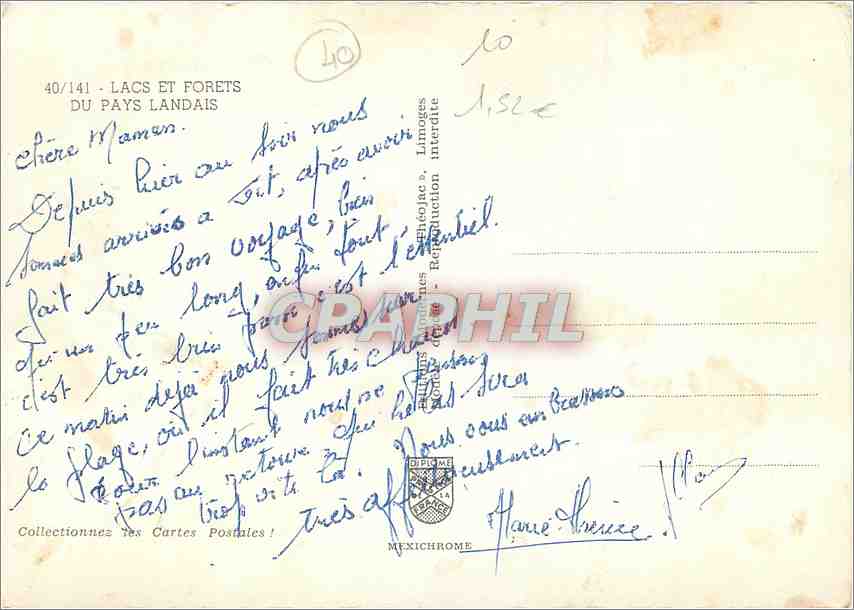 40
10
1,52€
40/141 - LACS ET FORETS
DU PAYS LANDAIS
Chère Maman.
Depuis hier au soir nous
sommes arrivés a après avoir
fait très bon voyage, bien
qu'un peu long, enfin tout
c'est très bien passé c'est l'essentiel.
Ce matin déjà nous sommes sur
la plage, où il fait très chaud
Pour l'instant nous ne pensons
pas au retour qui hélas sera
trop vite là. Nous vous embrassons
très affectueusement.
Marie-Thérèse
Editions Modernes « Théojac », Limoges
Modèle déposé - Reproduction interdite
CPAPHIL
DIPLOME
FRANCE
MEXICHROME
Collectionnez les Cartes Postales !